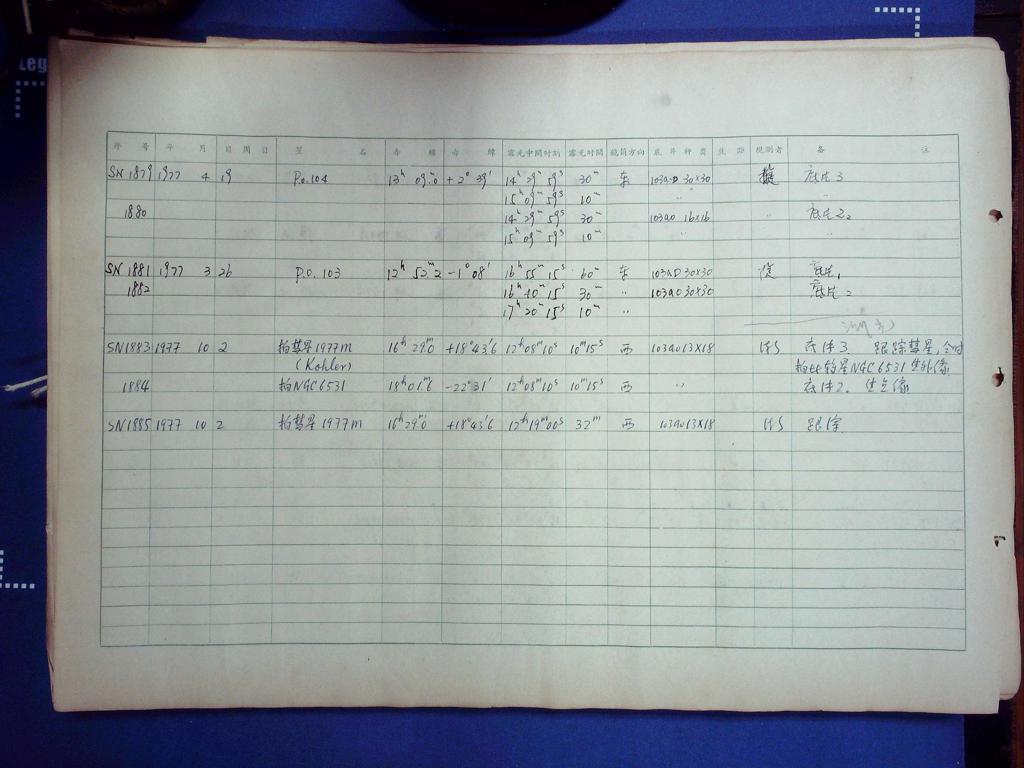 Leg
序 号 年 月 日 周 日 星 名 赤 经 赤 纬 露光中间时刻 露光时间 镜筒方向 底片种类 焦 距 观测者 备 注
SN 1879 1977 4 19 P.O. 104 13ʰ 09.ᵐ0 +2° 39′ 14ʰ 29ᵐ 59ˢ 30ᵐ 东 103aD 30×30 底片3
15ʰ 09ᵐ 59ˢ 10ᵐ 〃
1880 14ʰ 29ᵐ 59ˢ 30ᵐ 103a0 16×16 〃 底片2
15ʰ 09ᵐ 59ˢ 10ᵐ 〃 〃
SN 1881 1977 3 26 P.O. 103 12ʰ 52.ᵐ2 -1° 08′ 16ʰ 55ᵐ 15ˢ 60ᵐ 东 103aD 30×30 底片1
1882 16ʰ 40ᵐ 15ˢ 30ᵐ 〃 103a0 30×30 底片2
17ʰ 20ᵐ 15ˢ 10ᵐ 〃
SN1883 1977 10 2 拍彗星1977m 16ʰ 29.ᵐ0 +18°43.′6 12ʰ08ᵐ10ˢ 10ᵐ15ˢ 西 103a0 13×18 3. 跟踪彗星,
(Kohler) NGC 6531
1884 拍NGC 6531 18ʰ01.ᵐ6 -22°31′ 12ʰ08ᵐ10ˢ 10ᵐ15ˢ 西 〃 2.
SN1885 1977 10 2 拍彗星1977m 16ʰ29.ᵐ0 +18°43.′6 12ʰ19ᵐ00ˢ 32ᵐ 西 103a0 13×18 跟踪